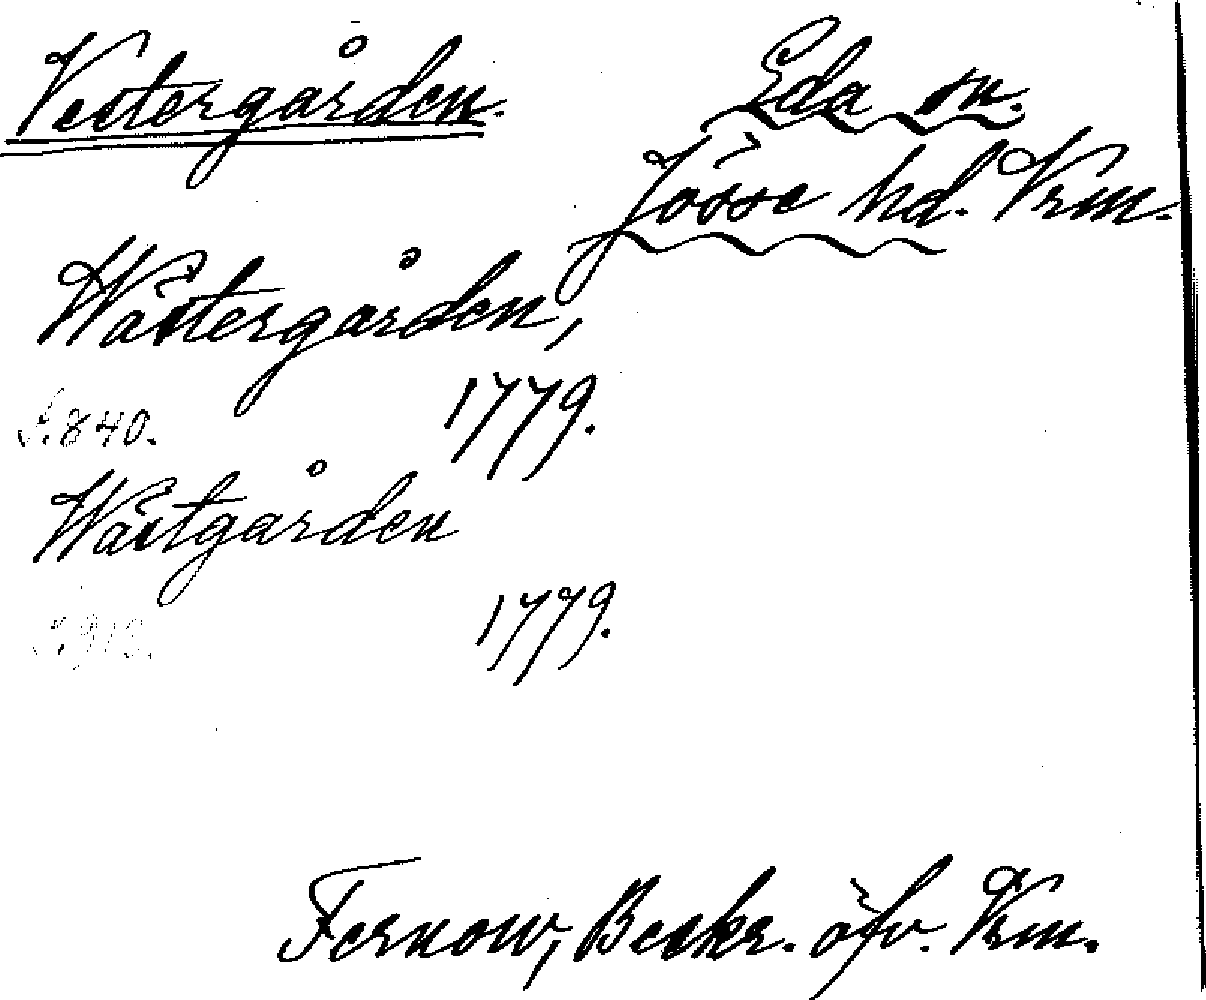 Vestergården.
Eda sn.
Jösse hd. Vrm.
Wästergården,
S. 840. 1779.
Wästgården
S. 913. 1779.
Fernow, Beskr. öfv. Vrm.